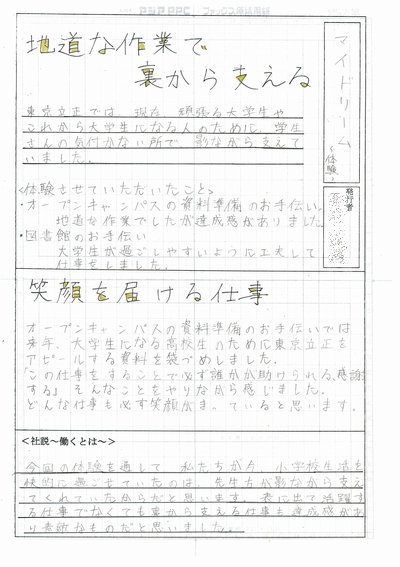 マイドリーム
～体験～
発行者
地道な作業で
裏から支える
東京立正では、現在、頑張る大学生や
これから大学生になる人のために、学生
さんの気付かない所で、影ながら支えて
いました。
<体験させていただいたこと>
・オープンキャンパスの資料準備のお手伝い
地道な作業でしたが達成感がありました。
・図書館のお手伝い
大学生が過ごしやすいように工夫して
仕事をしました。
笑顔を届ける仕事
オープンキャンパスの資料準備のお手伝いでは
来年、大学生になる高校生のために東京立正を
アピールする資料を袋づめしました。
「この仕事をすることで必ず誰かが助けられる、感謝
する」そんなことをやりながら感じました。
どんな仕事も必ず笑顔がまっていると思います。
<社説～働くとは～>
今回の体験を通して、私たちが今、小学校生活を
快的に過ごせていたのは、先生方が影ながら支え
てくれていたからだと思います。表に出て活躍す
る仕事でなくても裏から支える仕事も達成感があ
り素敵なものだと思いました。